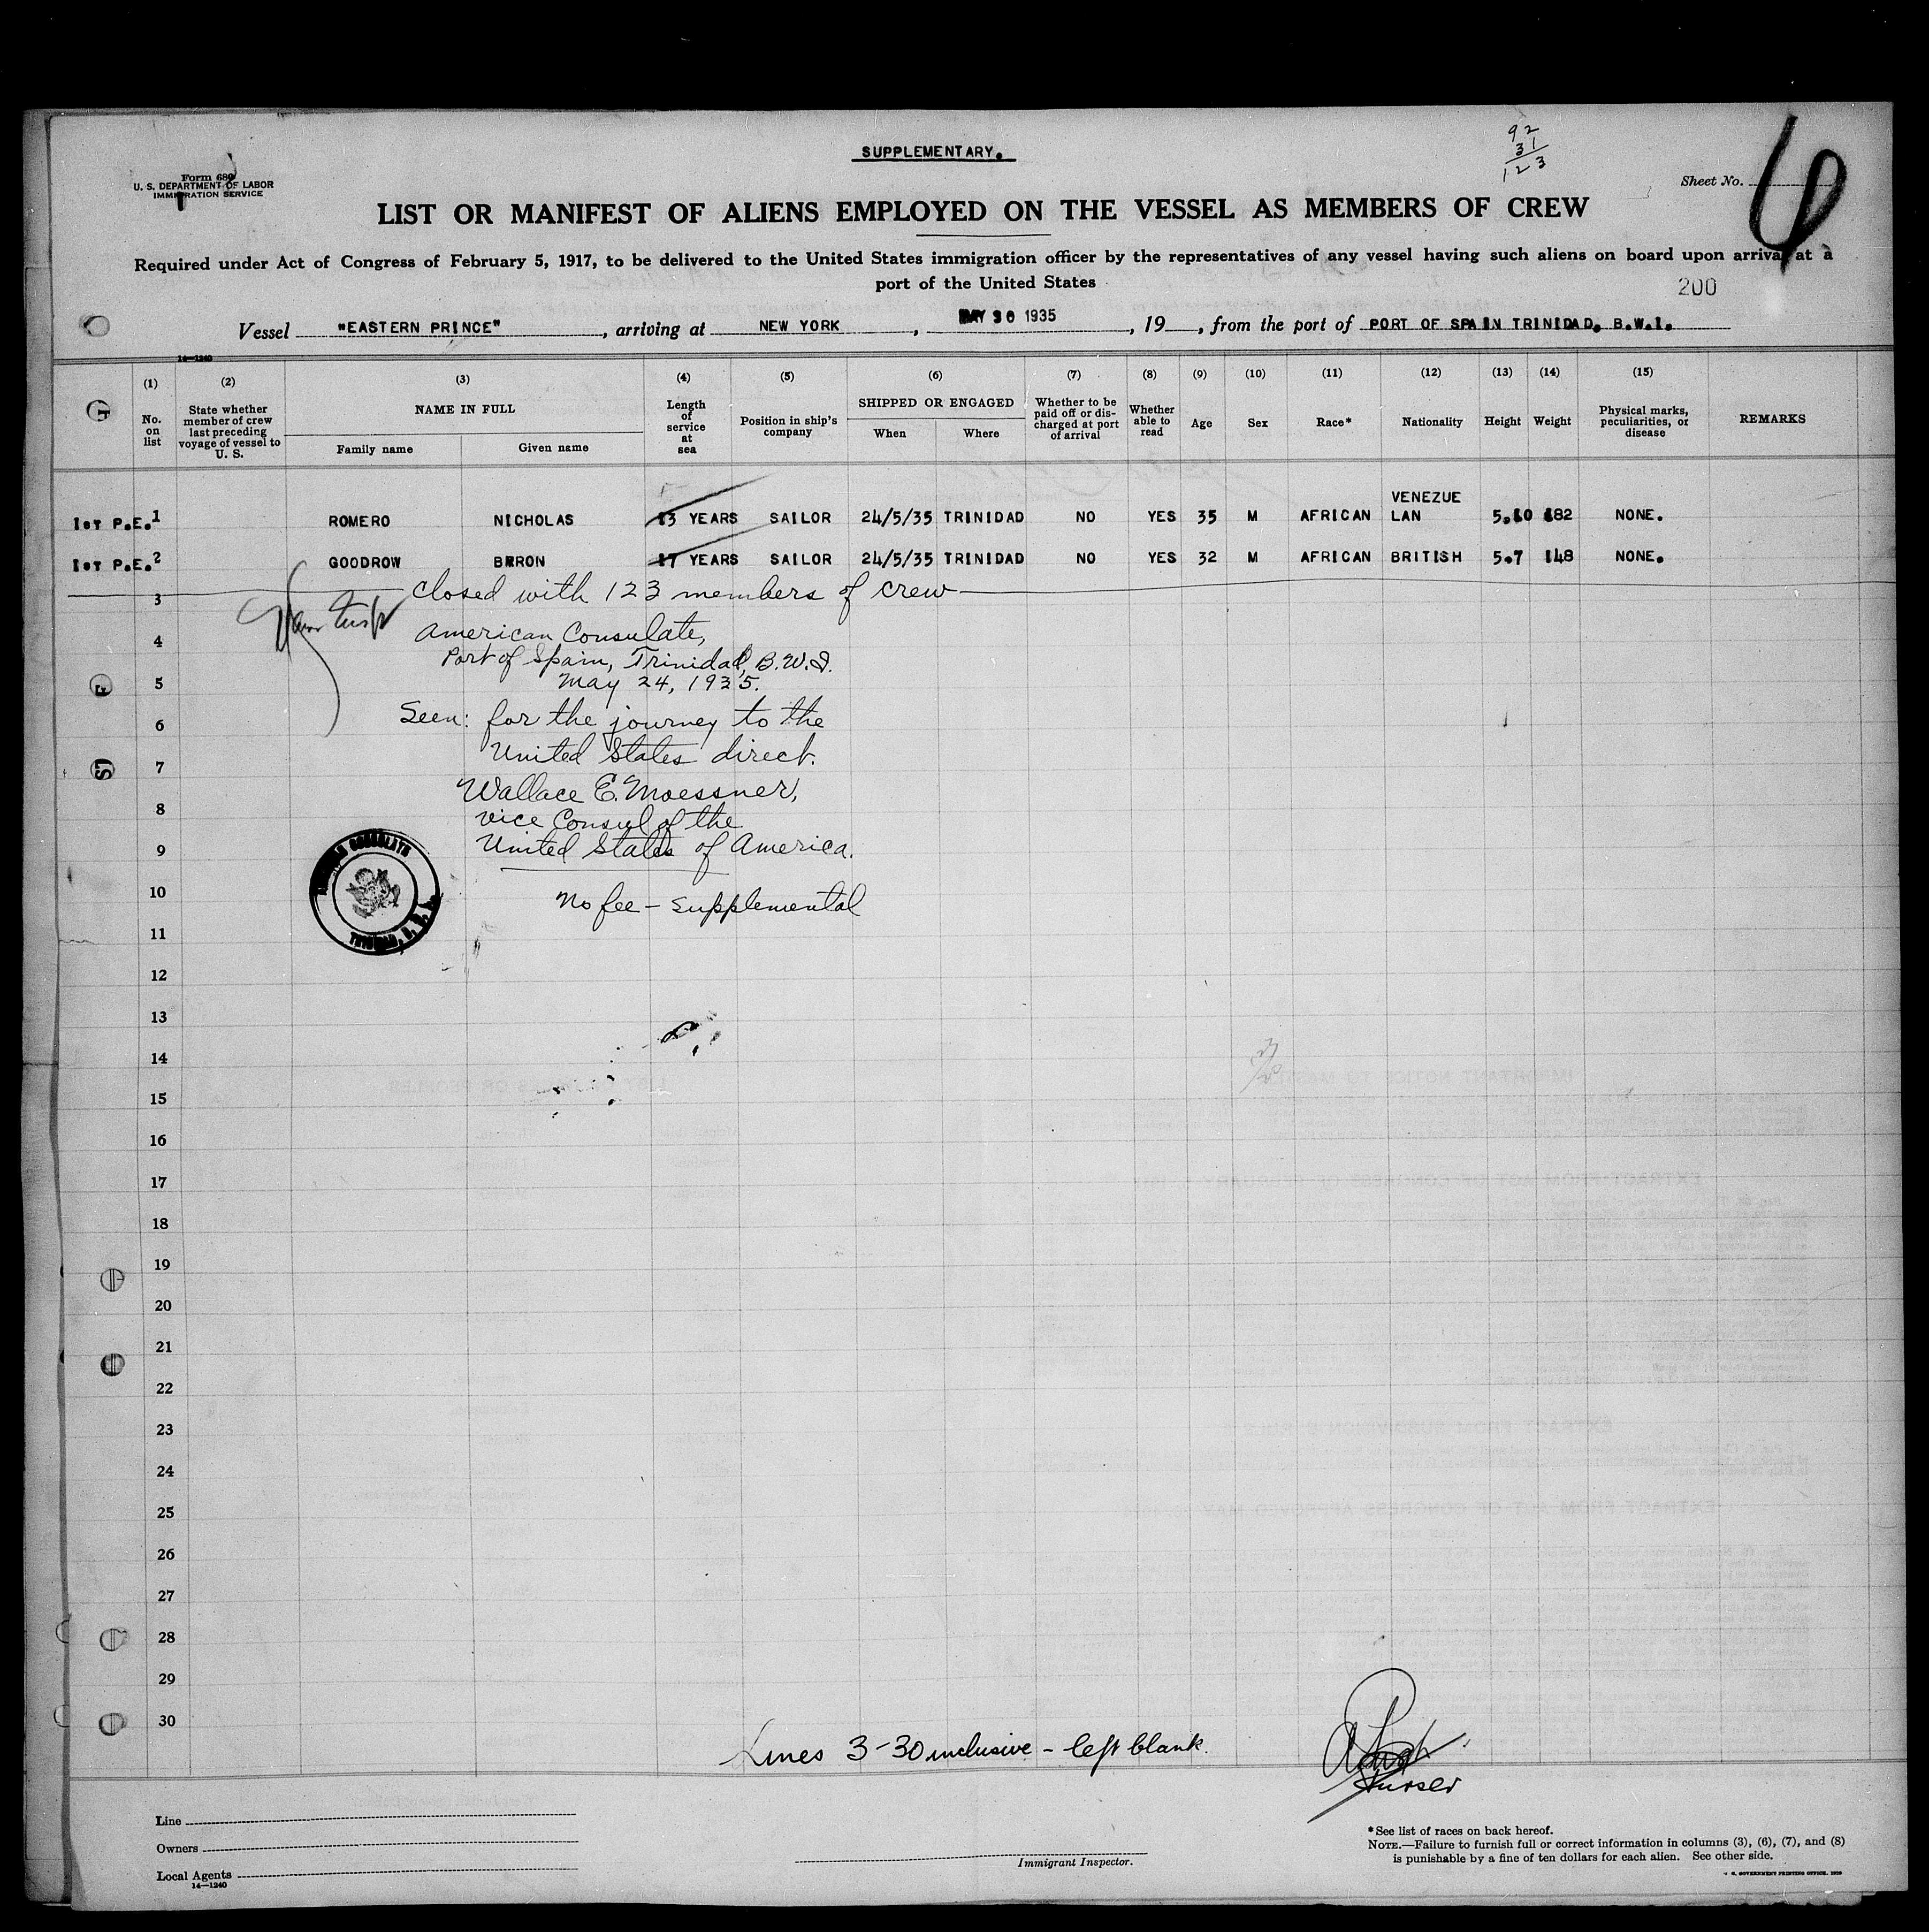 SUPPLEMENTARY.
92
31
123
Form 680
U. S. DEPARTMENT OF LABOR
IMMIGRATION SERVICE
Sheet No.
6
LIST OR MANIFEST OF ALIENS EMPLOYED ON THE VESSEL AS MEMBERS OF CREW
Required under Act of Congress of February 5, 1917, to be delivered to the United States immigration officer by the representatives of any vessel having such aliens on board upon arrival at a
port of the United States
200
Vessel "EASTERN PRINCE", arriving at NEW YORK, MAY 30 1935, 19__, from the port of PORT OF SPAIN TRINIDAD. B.W.I.
14—1240
(1) (2) (3) (4) (5) (6) (7) (8) (9) (10) (11) (12) (13) (14) (15)
No. on list
State whether member of crew last preceding voyage of vessel to U. S.
NAME IN FULL
Family name
Given name
Length of service at sea
Position in ship's company
SHIPPED OR ENGAGED
When
Where
Whether to be paid off or discharged at port of arrival
Whether able to read
Age
Sex
Race*
Nationality
Height
Weight
Physical marks, peculiarities, or disease
REMARKS
1ST P.E. 1 ROMERO NICHOLAS 13 YEARS SAILOR 24/5/35 TRINIDAD NO YES 35 M AFRICAN VENEZUE LAN 5.10 182 NONE.
1ST P.E. 2 GOODROW BRRON 17 YEARS SAILOR 24/5/35 TRINIDAD NO YES 32 M AFRICAN BRITISH 5.7 148 NONE.
Closed with 123 members of crew
3
American Consulate,
4
Port of Spain, Trinidad, B.W.I.
May 24, 1935.
5
Seen: for the journey to the
6
United States direct.
7
Wallace E. Moessner,
8
Vice Consul of the
United States of America.
9
AMERICAN CONSULATE
TRINIDAD, B.W.I.
10
No fee – Supplemental
11
12
13
14
15
16
17
18
19
20
21
22
23
24
25
26
27
28
29
30
Lines 3–30 inclusive – left blank.
Purser
Line
Owners
Local Agents
14—1240
Immigrant Inspector.
*See list of races on back hereof.
NOTE.—Failure to furnish full or correct information in columns (3), (6), (7), and (8)
is punishable by a fine of ten dollars for each alien. See other side.